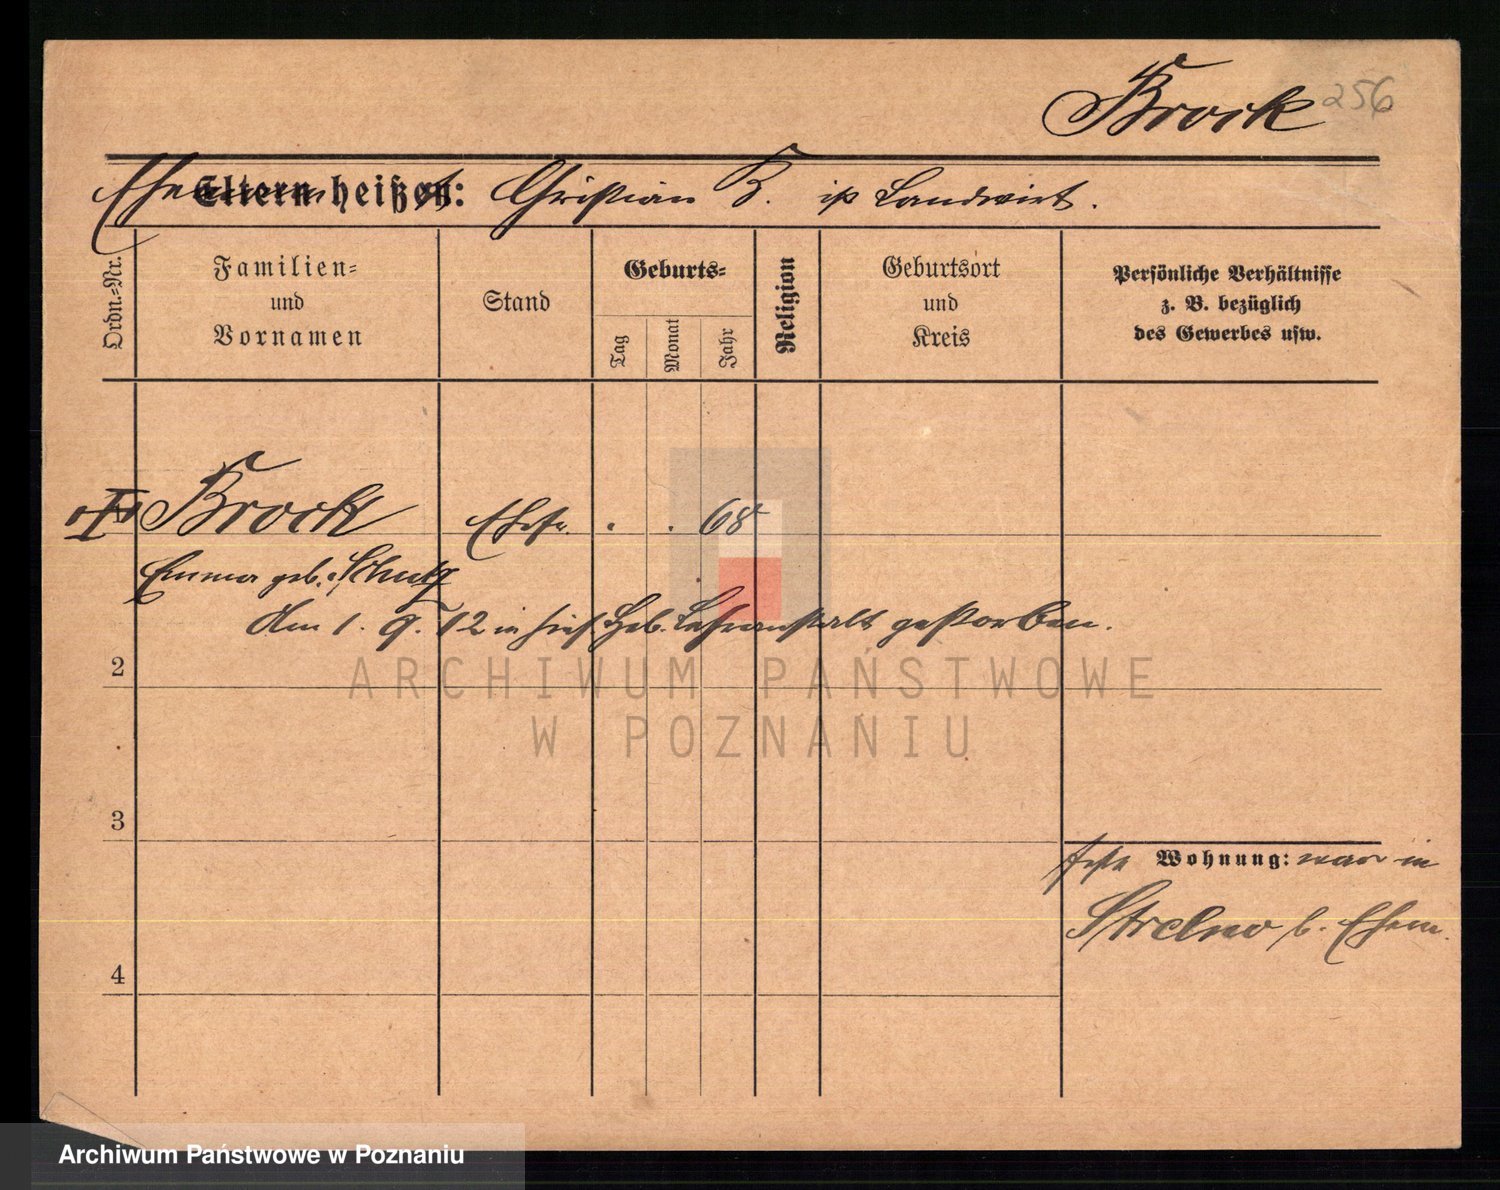 Brock 256
Eltern heißen: Christian B. ist Landwirt.
Ordn.-Nr.
Familien-
und
Vornamen
Stand
Geburts-
Tag
Monat
Jahr
Religion
Geburtsort
und
Kreis
Persönliche Verhältnisse
z. B. bezüglich
des Gewerbes usw.
Brock Ehefr. . . 68
Emma geb. Schulz
Am 1. 9. 12 in hies. Heb. Lehranstalt gestorben.
2
ARCHIWUM PAŃSTWOWE
W POZNANIU
3
Wohnung: war in
Strelno b. Ehem.
4
Archiwum Państwowe w Poznaniu